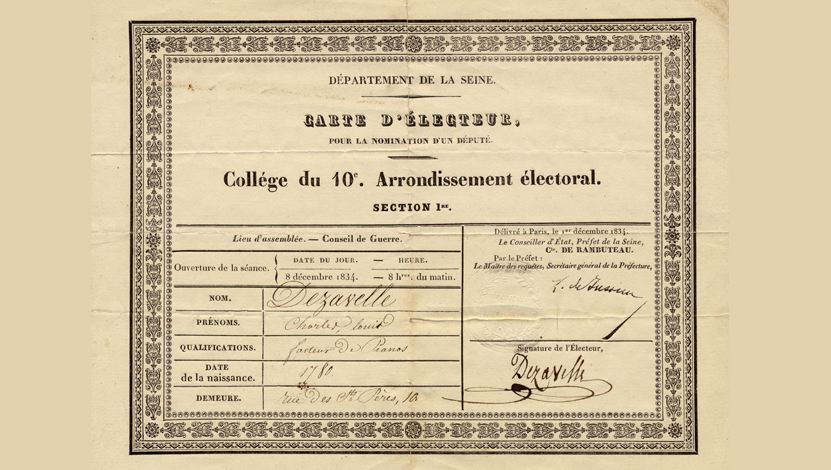 DÉPARTEMENT DE LA SEINE.
CARTE D'ÉLECTEUR,
POUR LA NOMINATION D'UN DÉPUTÉ.
Collége du 10e. Arrondissement électoral.
SECTION 1re.
Lieu d'assemblée. — Conseil de Guerre.
Ouverture de la séance.
DATE DU JOUR. — HEURE.
8 décembre 1834. — 8 hres. du matin.
NOM. Dezavelle
PRÉNOMS. Charles, louis
QUALIFICATIONS. facteur de Pianos
DATE
de la naissance. 1780.
DEMEURE. rue des Sts Pères, 10
Délivré à Paris, le 1er décembre 1834.
Le Conseiller d'État, Préfet de la Seine,
Cte. DE RAMBUTEAU.
Par le Préfet :
Le Maître des requêtes, Secrétaire général de la Préfecture,
Signature de l'Électeur,
Dezavelle